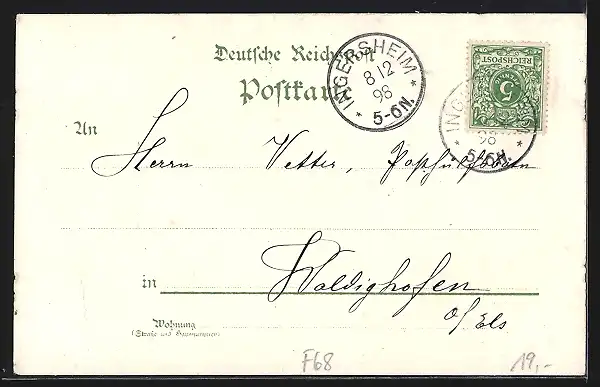 Deutsche Reichspost
Postkarte
INGERSHEIM
8 12
98
5-6N.
REICHSPOST
5
98
5-6N.
An
Herrn Vetter,
in Waldighofen
o/Els
Wohnung
(Straße und Hausnummer)
F68
19,-